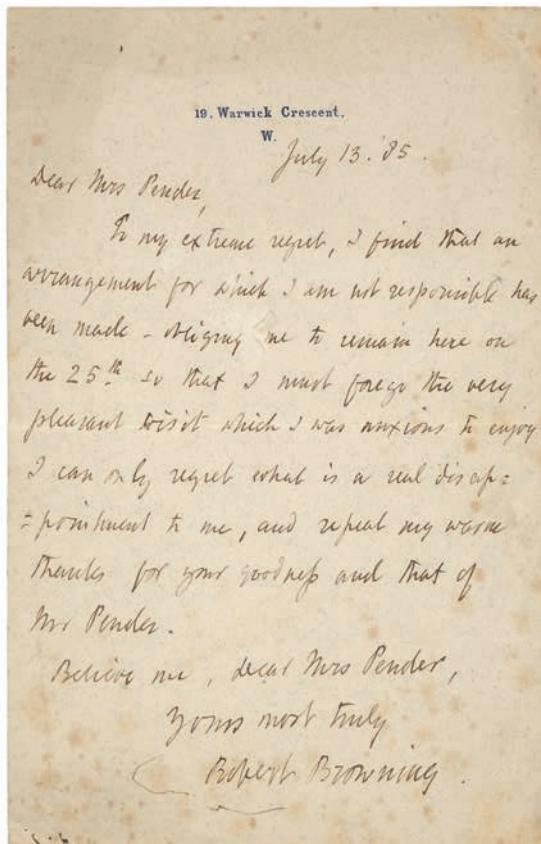 19. Warwick Crescent.
W.
July 13. '85.
Dear Mrs Pender,
To my extreme regret, I find that an
arrangement for which I am not responsible has
been made - obliging me to remain here on
the 25th. so that I must forego the very
pleasant visit which I was anxious to enjoy
I can only regret what is a real disap=
=pointment to me, and repeat my warm
thanks for your goodness and that of
Mr Pender.
Believe me, dear Mrs Pender,
Yours most truly
Robert Browning.